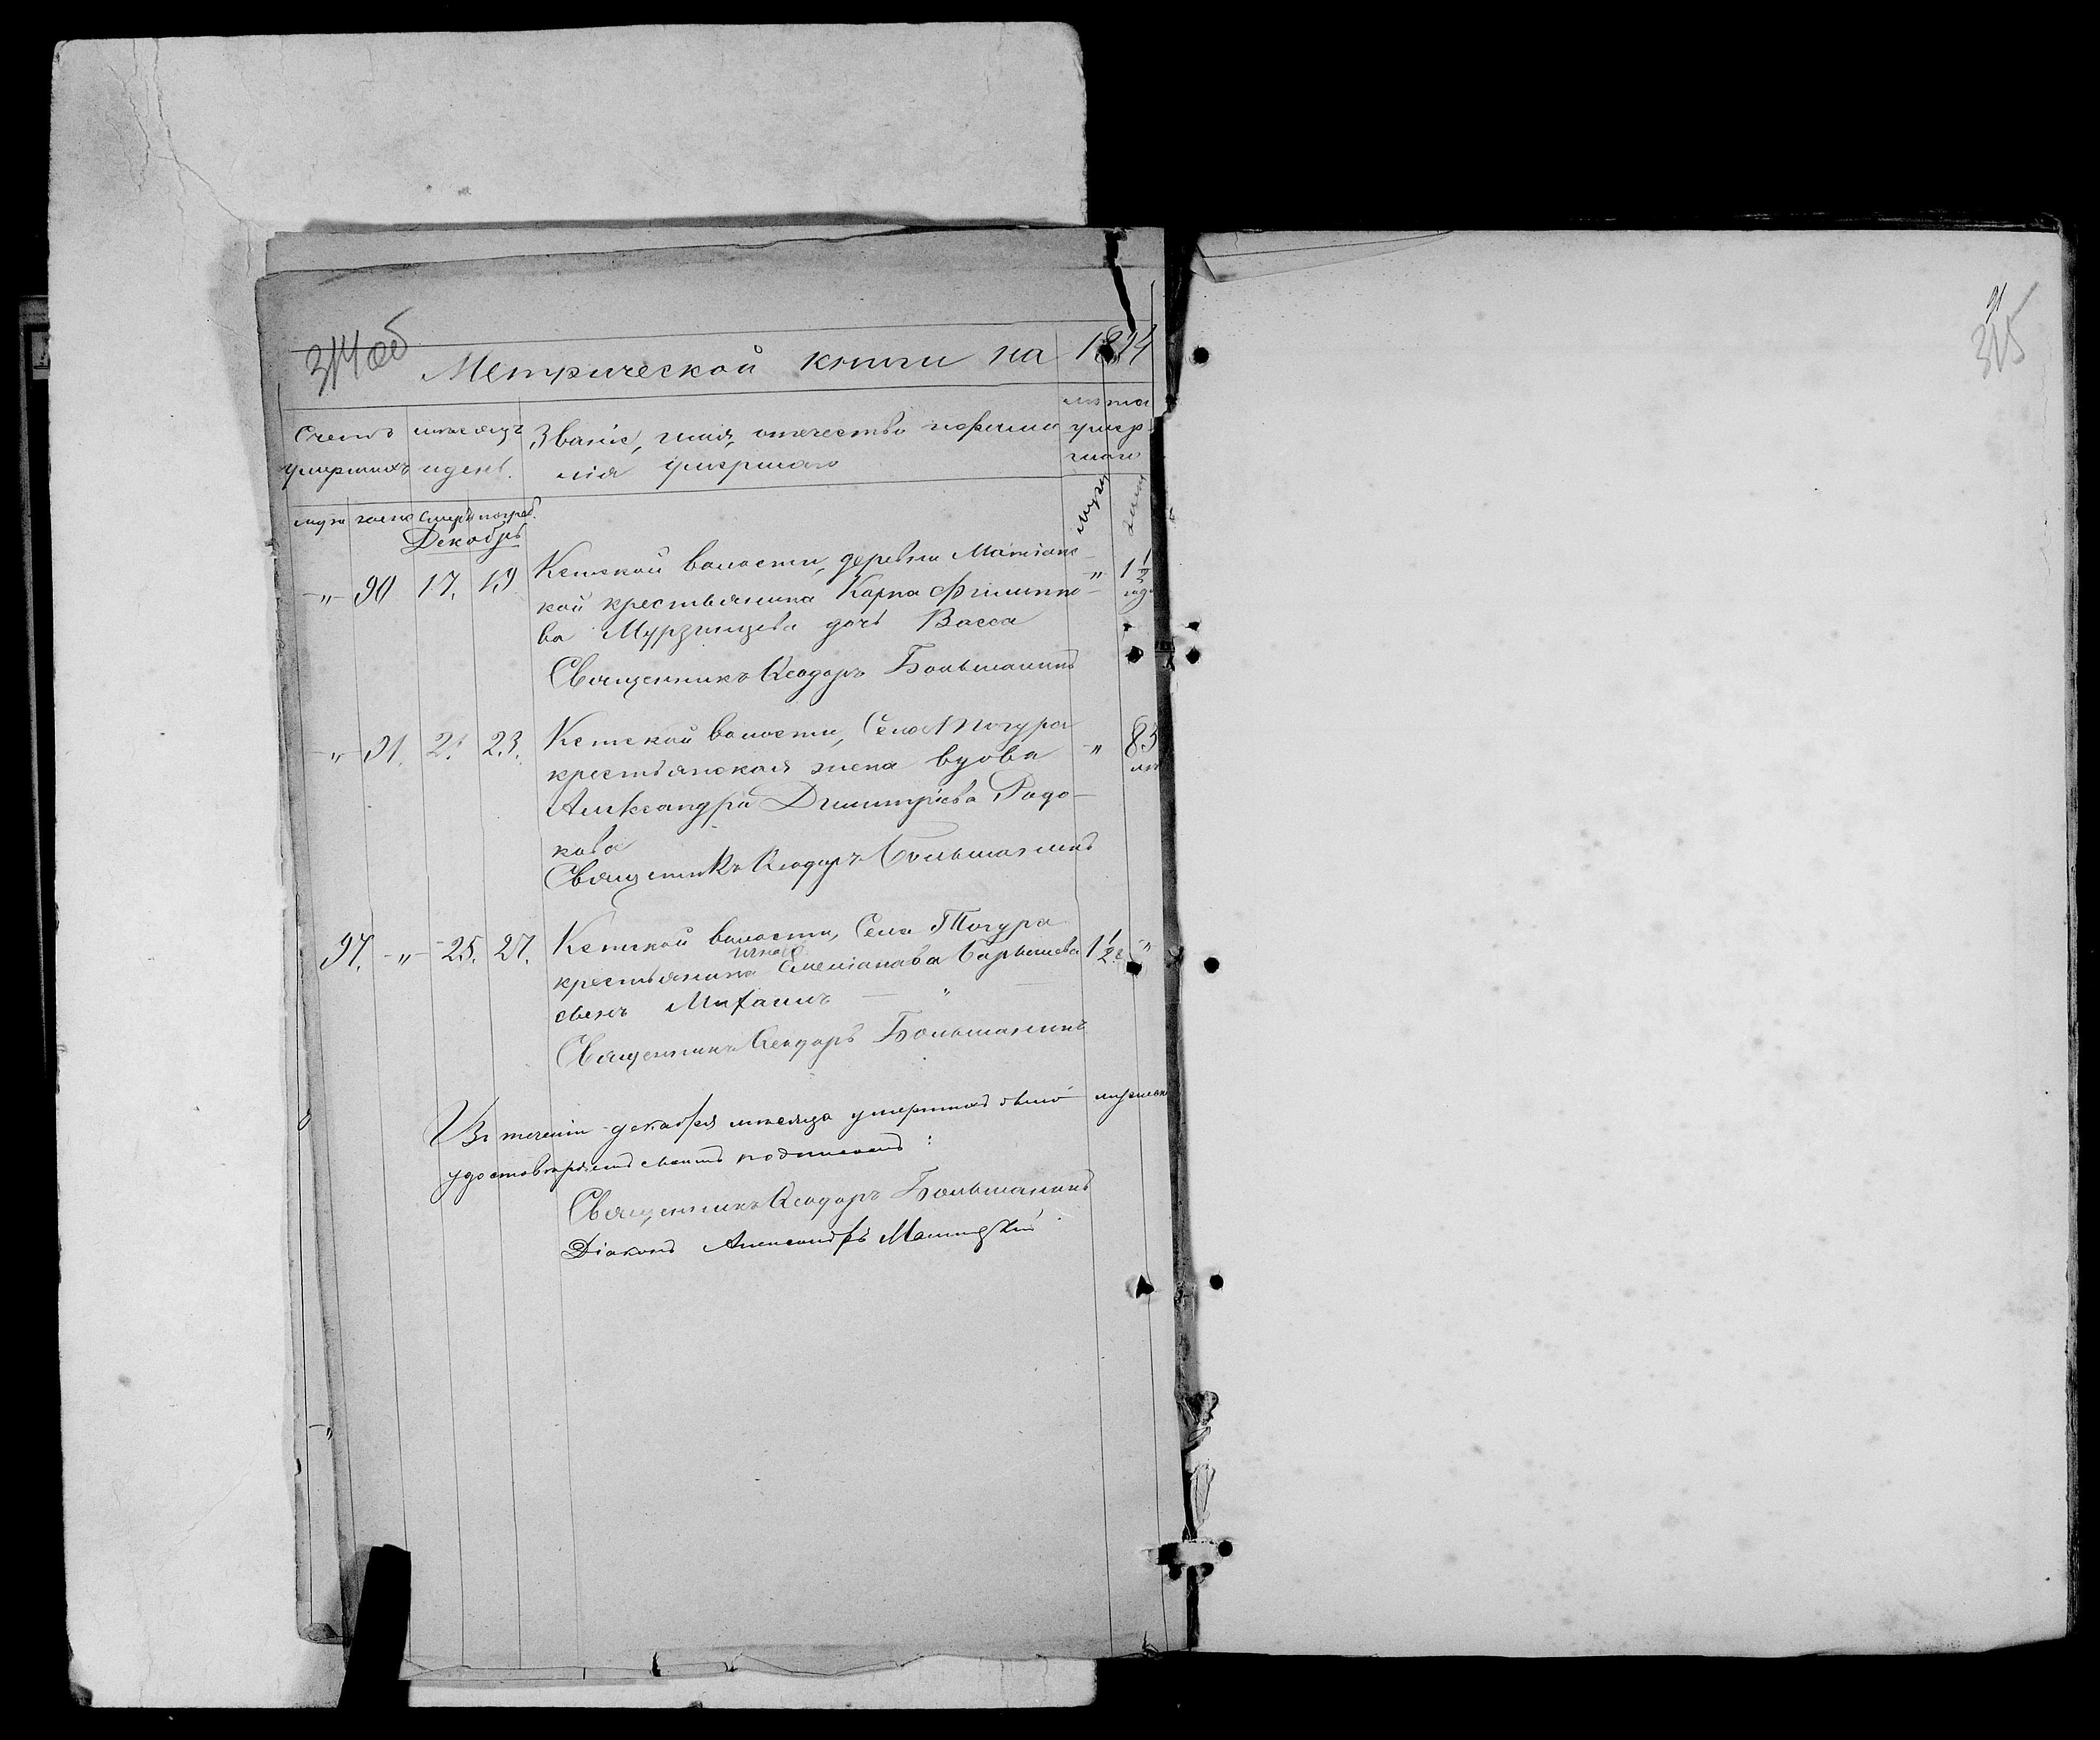 314об
Метрической книги на 18
Счетъ мѣсяцъ Званіе, имя, отечество и фами лѣта
умершихъ и день. лія умершаго умер
шаго
муж женс Смерт погреб. муж
Декабрь
" 90 17. 19 Кетской волости, деревни
кой крестьянина Карпа Филиппо " 1 1/2
ва Мурзинцева дочь Васса года
Священникъ Ѳеодоръ Большанинъ
" 91. 21 23. Кетской волости, Села Тогура " 83
крестьянская жена вдова
Александра Димитріева Родо-
кова
Священникъ Ѳеодоръ Большанинъ
97. " 25. 27. Кетской волости, Села Тогура
крестьянина Емеліанова Барышева 1 1/2 г "
сынъ Михаилъ "
Священникъ Ѳеодоръ Большанинъ
Въ теченіи декабря мѣсяца умершихъ было
удостовѣряемъ своимъ подписомъ:
Священникъ Ѳеодоръ Большанинъ
Діаконъ Александръ
91
315